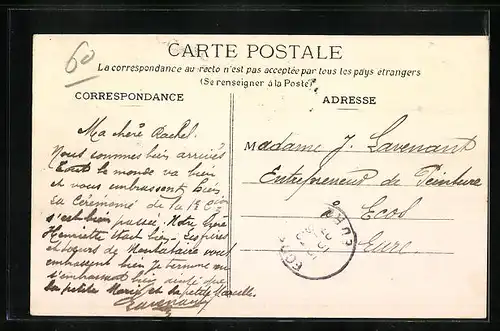 60
CARTE POSTALE
La correspondance au recto n'est pas acceptée par tous les pays étrangers
(Se renseigner à la Poste)
CORRESPONDANCE
ADRESSE
Ma chère Rachel.
Nous sommes bien arrivés
tout le monde va bien
et vous embrassent bien
La Cérémonie de la 1re
s'est bien passée. Notre
Henriette était bien. Les
et de Montataire vous
embrassent bien je termine en
t'embrassant bien ainsi que
la petite Marie et la petite Marcelle.
Lavenant
Madame J. Lavenant
Entrepreneur de Peinture
à
Ecos
Eure
ECOS
EURE